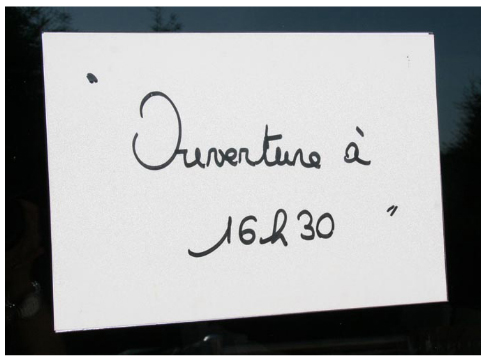 " Ouverture à
16h30 "